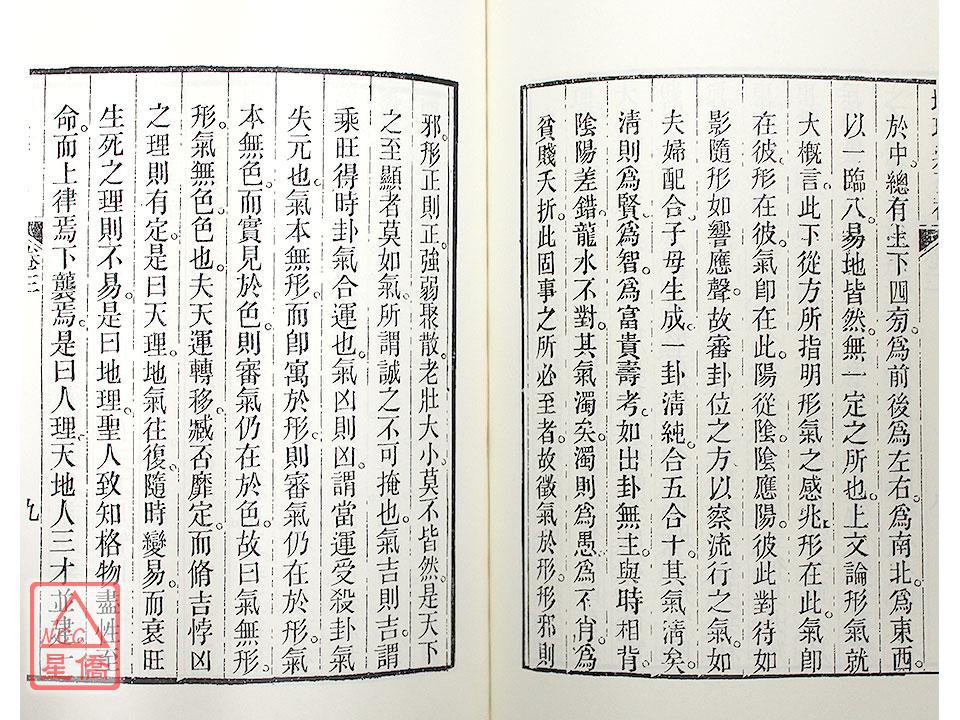 於中。總有上下四旁。爲前後爲左右。爲南北。爲東西
以一臨八。易地皆然。無一定之所也。上文論形氣就
大概言。此下從方所指明形氣之感兆。形在此。氣卽
在彼。形在彼。氣卽在此。陽從陰。陰應陽。彼此對待如
影隨形如響應聲。故審卦位之方以察流行之氣如
夫婦配合。子母生成。一卦淸純。合五合十。其氣淸矣。
淸則爲賢。爲智。爲富貴壽考。如出卦無主。與時相背。
陰陽差錯。龍水不對。其氣濁矣。濁則爲愚。爲不肖。爲
貧賤夭折。此固事之所必至者。故徵氣於形。形邪則
邪。形正則正。強弱聚散。老壯大小。莫不皆然。是天下
之至顯者莫如氣。所謂誠之不可掩也。氣吉則吉。謂
乘旺得時卦氣合運也。氣凶則凶。謂當運受殺卦氣
失元也。氣本無形。而卽寓於形。則審氣仍在於形。氣
本無色。而實見於色。則審氣仍在於色。故曰氣無形。
形。氣無色。色也。夫天運轉移。臧否靡定。而脩吉悖凶
之理則有定。是曰天理。地氣往復。隨時變易。而衰旺
生死之理則不易。是曰地理。聖人致知格物盡性至
命。而上律焉。下襲焉。是曰人理。天地人三才並建一
卷三
九
NCC
星僑